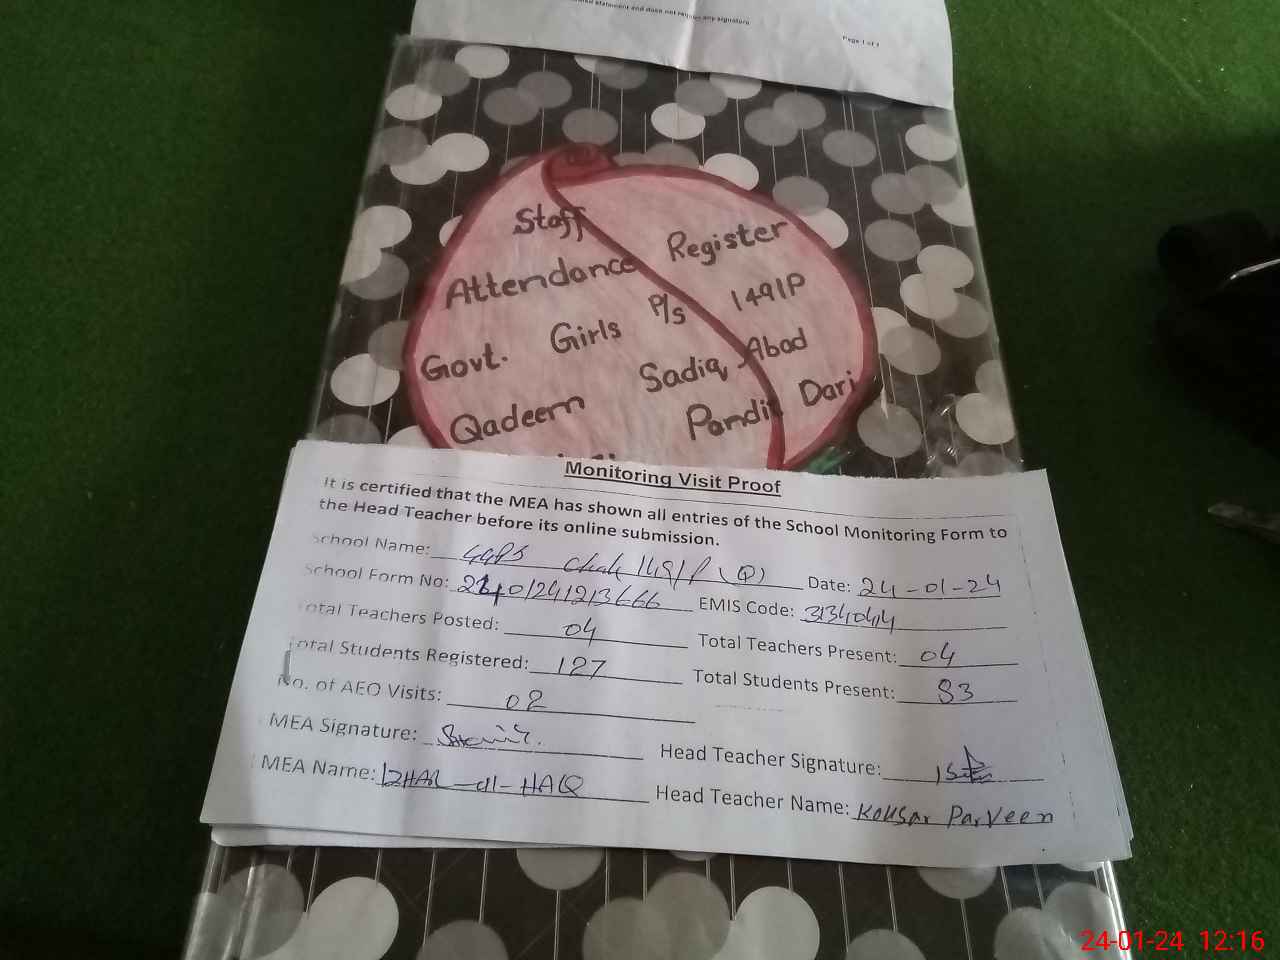 statement and does not require any signature
Page 1 of 1
Staff
Attendance Register
Govt. Girls P/s 149/P
Qadeem Sadiq Abad
Pandit Dari
Monitoring Visit Proof
It is certified that the MEA has shown all entries of the School Monitoring Form to
the Head Teacher before its online submission.
School Name: GGPS Chak 149/P (Q) Date: 24-01-24
School Form No: EMIS Code: 31340414
Total Teachers Posted: 04 Total Teachers Present: 04
Total Students Registered: 127 Total Students Present: 83
No. of AEO Visits: 02
MEA Signature: Head Teacher Signature:
MEA Name: IZHAR-ul-HAQ Head Teacher Name: Kousar Parveen
24-01-24 12:16